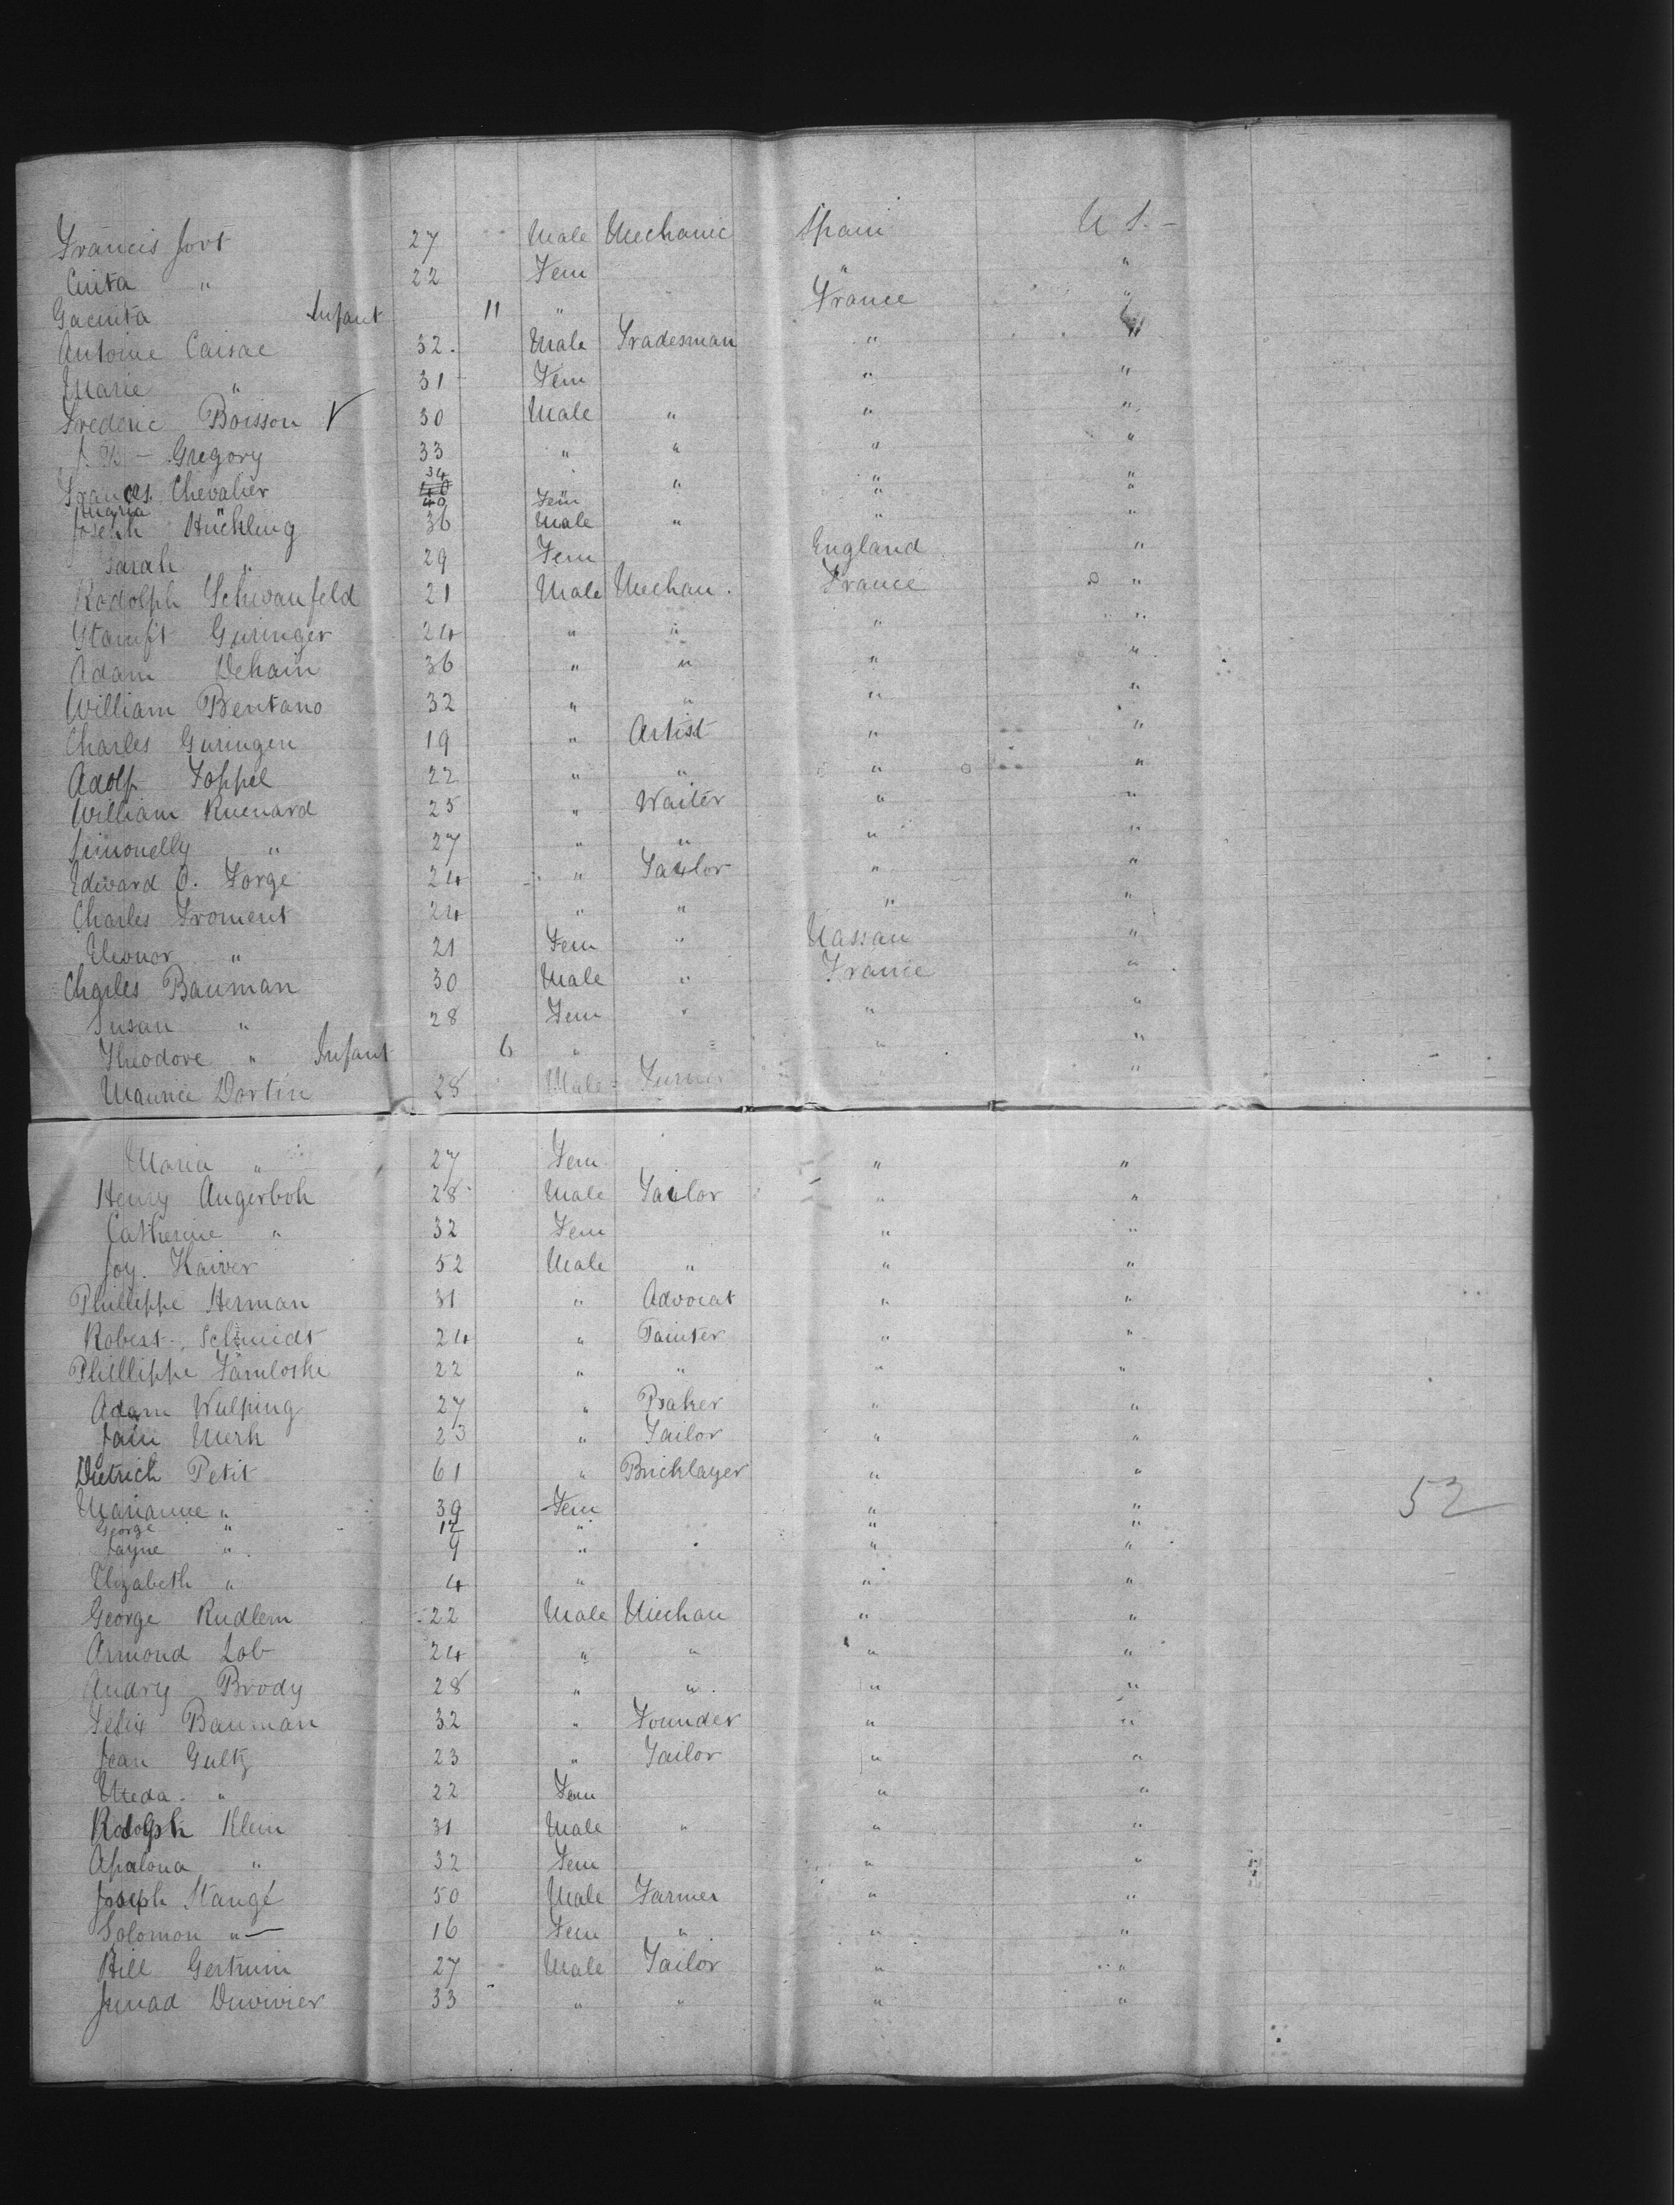 Francis Jort 27 Male Mechanic Spain U S. -
Cinta " 22 Fem " "
Gacinta Infant 11 " France "
Antoine Caisac 32. Male Tradesman " "
Marie " 31 Fem " "
Frederic Boisson √ 30 Male " " "
Gregory 33 " " " "
Frances. Chevalier 34 " " "
Maria 40 Fem " "
Joseph Hückling 36 Male " " "
Sarah " 29 Fem England "
Rodolph Schwanfeld 21 Male Mechan. France "
Stamft Guringer 24 " " " "
Adam Dehain 36 " " " "
William Bentano 32 " " " "
Charles Guringen 19 " Artist " "
Adolf Toppel 22 " " " "
William Ruenard 25 " Waiter " "
Simonelly " 27 " " " "
Edward O. Forge 24 " Tailor " "
Charles Froment 24 " " " "
Eleonor " 21 Fem " Nassau "
Charles Bauman 30 Male " France "
Susan " 28 Fem " " "
Theodore " Infant 6 " " " "
Maurice Dortin 28 Male " "
Maria " 27 Fem " "
Henry Angerboh 28 Male Tailor " "
Catherine " 32 Fem " "
Joy. Kaiver 52 Male " " "
Phillippe Herman 31 " Advocat " "
Robert. Schmidt 24 " Painter " "
Phillippe Tamloski 22 " " " "
Adam Wulping 27 " Baker " "
Jain Merk 23 " Tailor " "
Dietrich Petit 61 " Bricklayer " "
Marianne " 39 Fem " "
George " 12 " " "
Jayne " 9 " " "
Elizabeth " 4 " " "
52
George Rudlem 22 Male Mechan " "
Armond Lob 24 " " " "
Andry Brody 28 " " " "
Felix Bauman 32 " Founder " "
Jean Gultz 23 " Tailor " "
Meda. " 22 Fem " "
Rodolph Klein 31 Male " " "
Apalona " 32 Fem " "
Joseph Stangé 50 Male Farmer " "
Solomon " — 16 Fem " " "
Bill Gertruin 27 Male Tailor " "
Junad Duvivier 33 " " " "